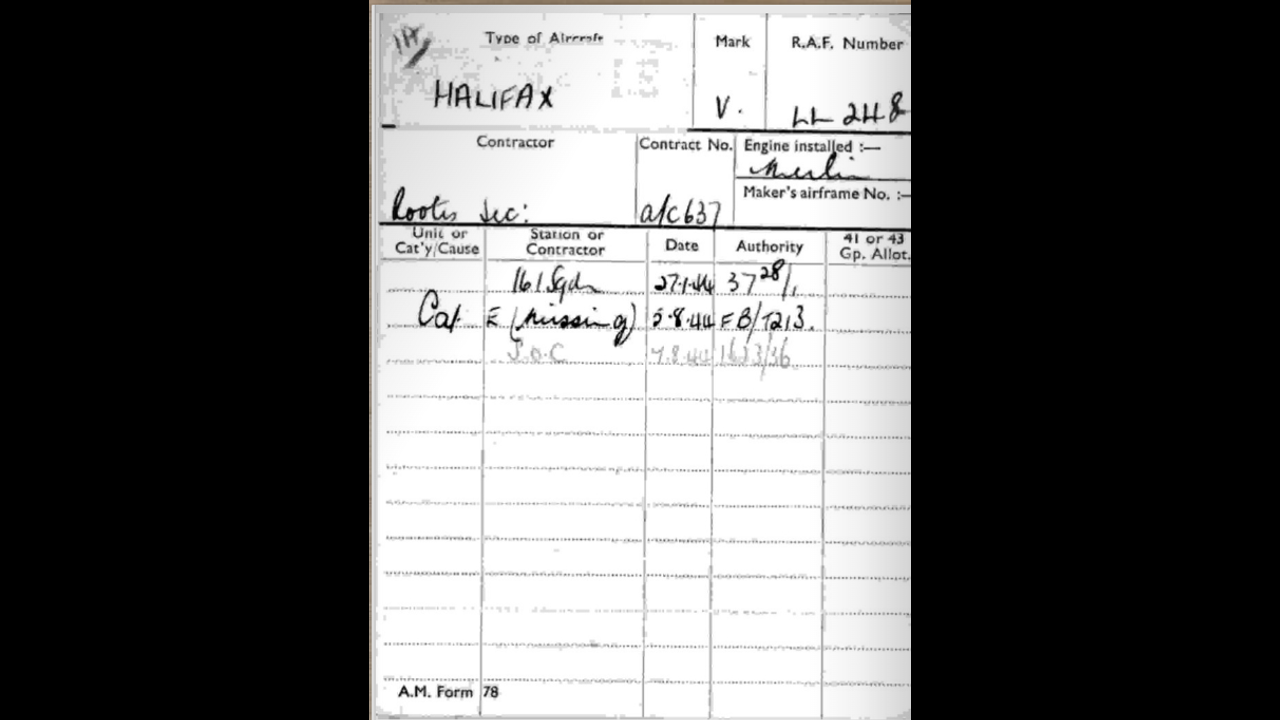 Type of Aircraft Mark R.A.F. Number
HALIFAX V. LL 248
Contractor Contract No. Engine installed :—
Merlin
Maker's airframe No. :—
Rootes Sec: a/c637
Unit or Cat'y/Cause Station or Contractor Date Authority 41 or 43 Gp. Allot.
161 Sqdn 27.1.44 37 28/1
Cat E (Missing) 5.8.44 FB/T213.
S.O.C 7.8.44
A.M. Form 78